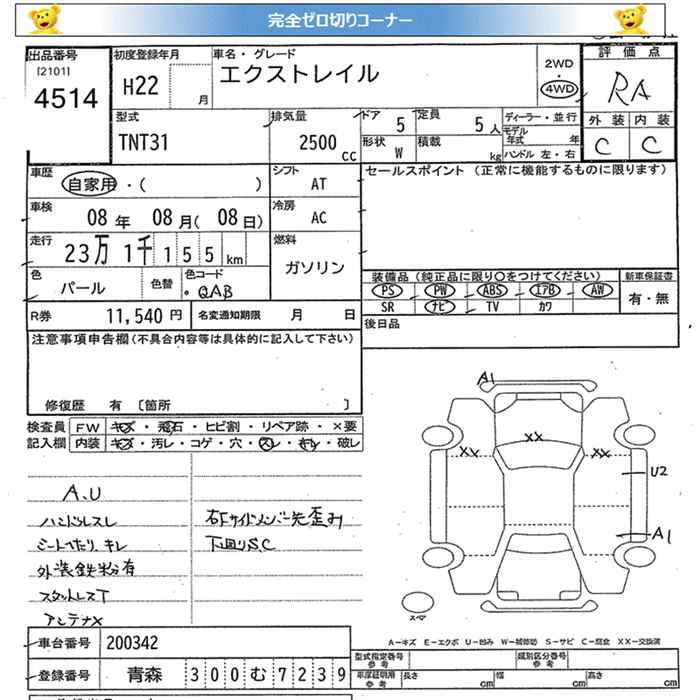 完全ゼロ切りコーナー
出品番号 初度登録年月 車名・グレード 評価点
[2101] 2WD
4514 H22 月 エクストレイル 4WD RA
外装 内装
C C
型式 排気量 ドア 定員 ディーラー・並行
TNT31 2500 cc 5 5人 モデル年式 年
形状 W 積載 kg ハンドル 左・右
車歴 シフト セールスポイント (正常に機能するものに限ります)
自家用・( ) AT
車検 冷房
08年 08月(08日) AC
走行 燃料
23万 1千 155 km ガソリン
装備品 (純正品に限り○をつけてください) 新車保証書
色 色替 色コード PS PW ABS エアB AW 有・無
パール QAB SR ナビ TV カワ
R券 11,540円 名変通知期限 月 日 後日品
注意事項申告欄(不具合内容等は具体的に記入して下さい)
修復歴 有 〔箇所 〕
検査員 FW キズ・飛石・ヒビ割・リペア跡・×要
記入欄 内装 キズ・汚レ・コゲ・穴・スレ・キレ・破レ
A1
XX XX XX
U2
A1
A、U
ハンドルスレ 右Fサイドメンバー先歪み
シートへたり、キレ 下回りS.C
外装鉄粉有
スタットレスT
アンテナX
スペア
A-キズ E-エクボ U-凹み W-補修跡 S-サビ C-腐食 XX-交換済
車台番号 200342 型式指定番号 参考 類別区分番号 参考
登録番号 青森 300 む 7239 車庫証明用 参考 長さ cm 幅 cm 高さ cm